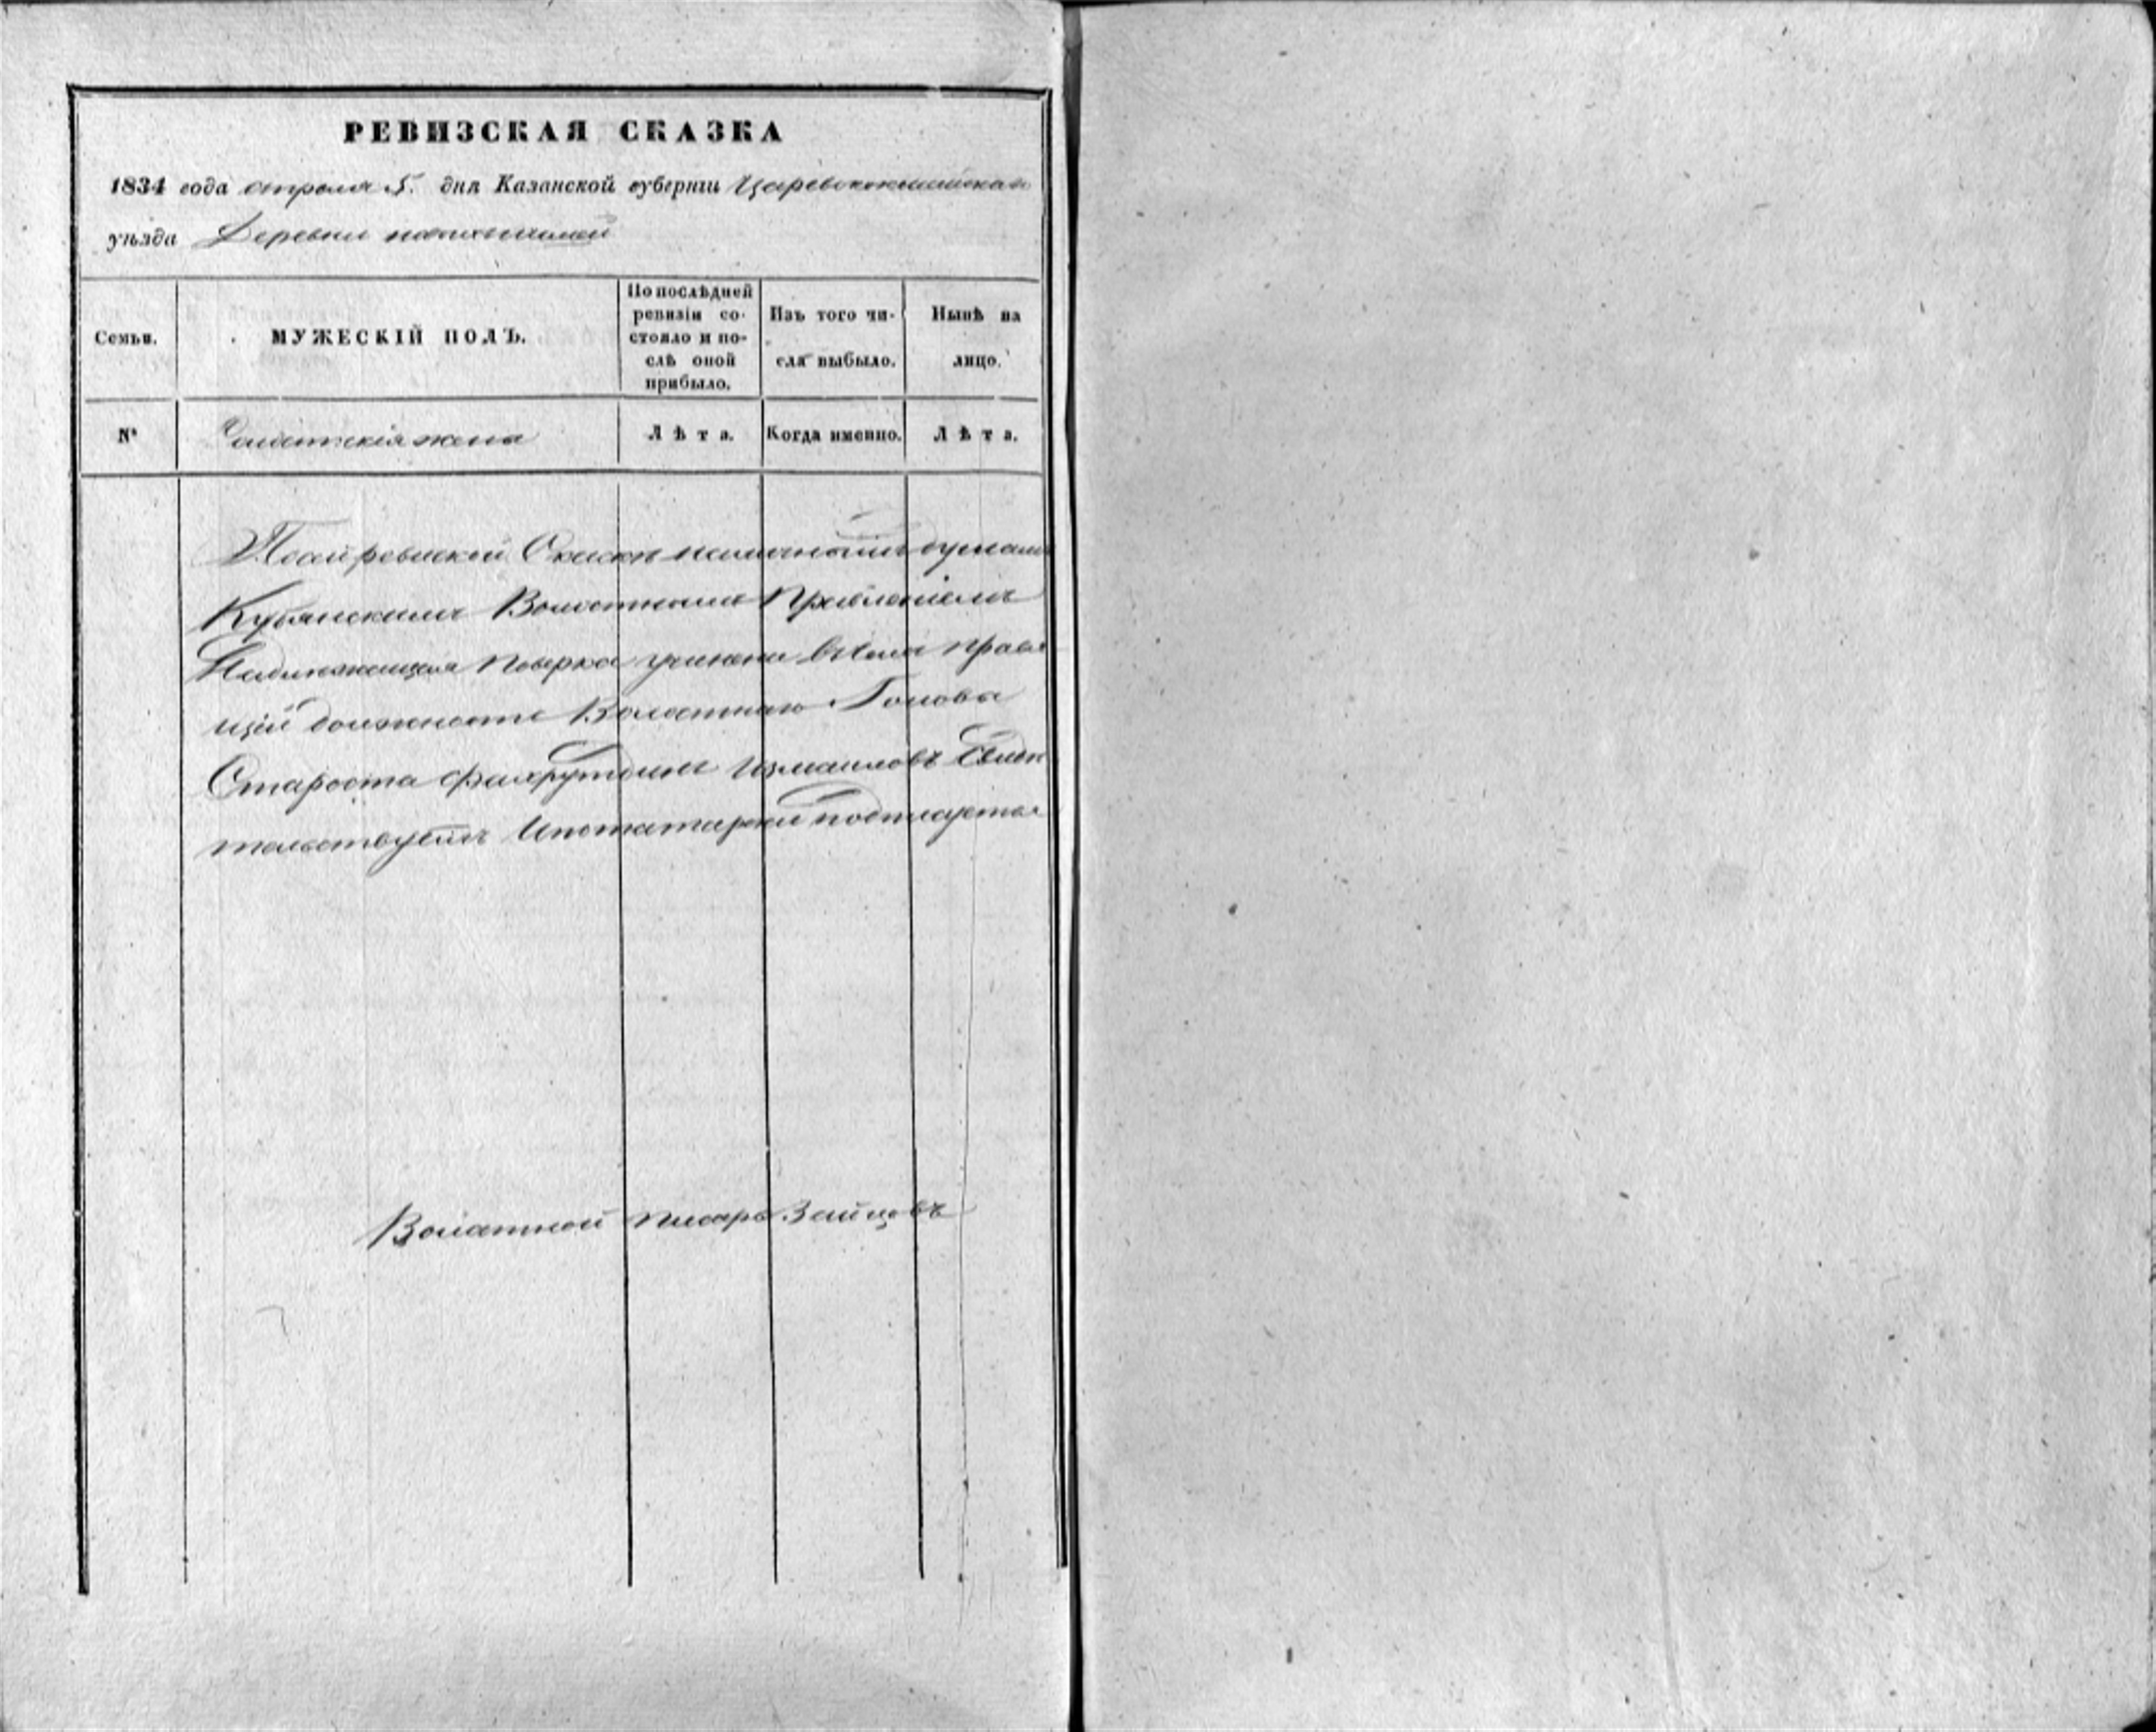 РЕВИЗСКАЯ СКАЗКА
1834 года апреля 5. дня Казанской губернiи Царевококшайскаго
уѣзда Деревни
Семьи.
МУЖЕСКIЙ ПОЛЪ.
По послѣдней ревизiи со-
стояло и по-
слѣ оной
прибыло.
Изъ того чи-
сла выбыло.
Нынѣ на
лицо.
№
Солдатскiя жена
Лѣта.
Когда именно.
Лѣта.
По сей ревиской Скаски
Кубянскимъ Волостнымъ Правленiемъ
Надлежащая поверка учинена вчем правя
щiй должность Волостнаго Голова
Староста Фахрутдинъ Измаиловъ Свиде
тельствуетъ потатарски подписуется
Волостной писарь Зайцовъ